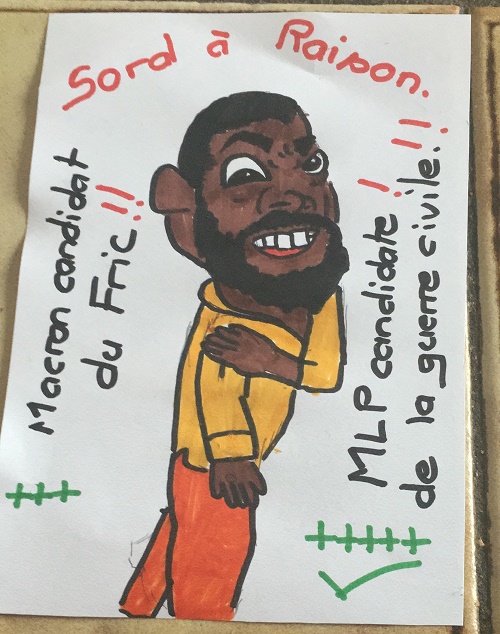 Sord à Raison.
Macron candidat
du Fric !!
MLP candidate !
de la guerre civile. !!